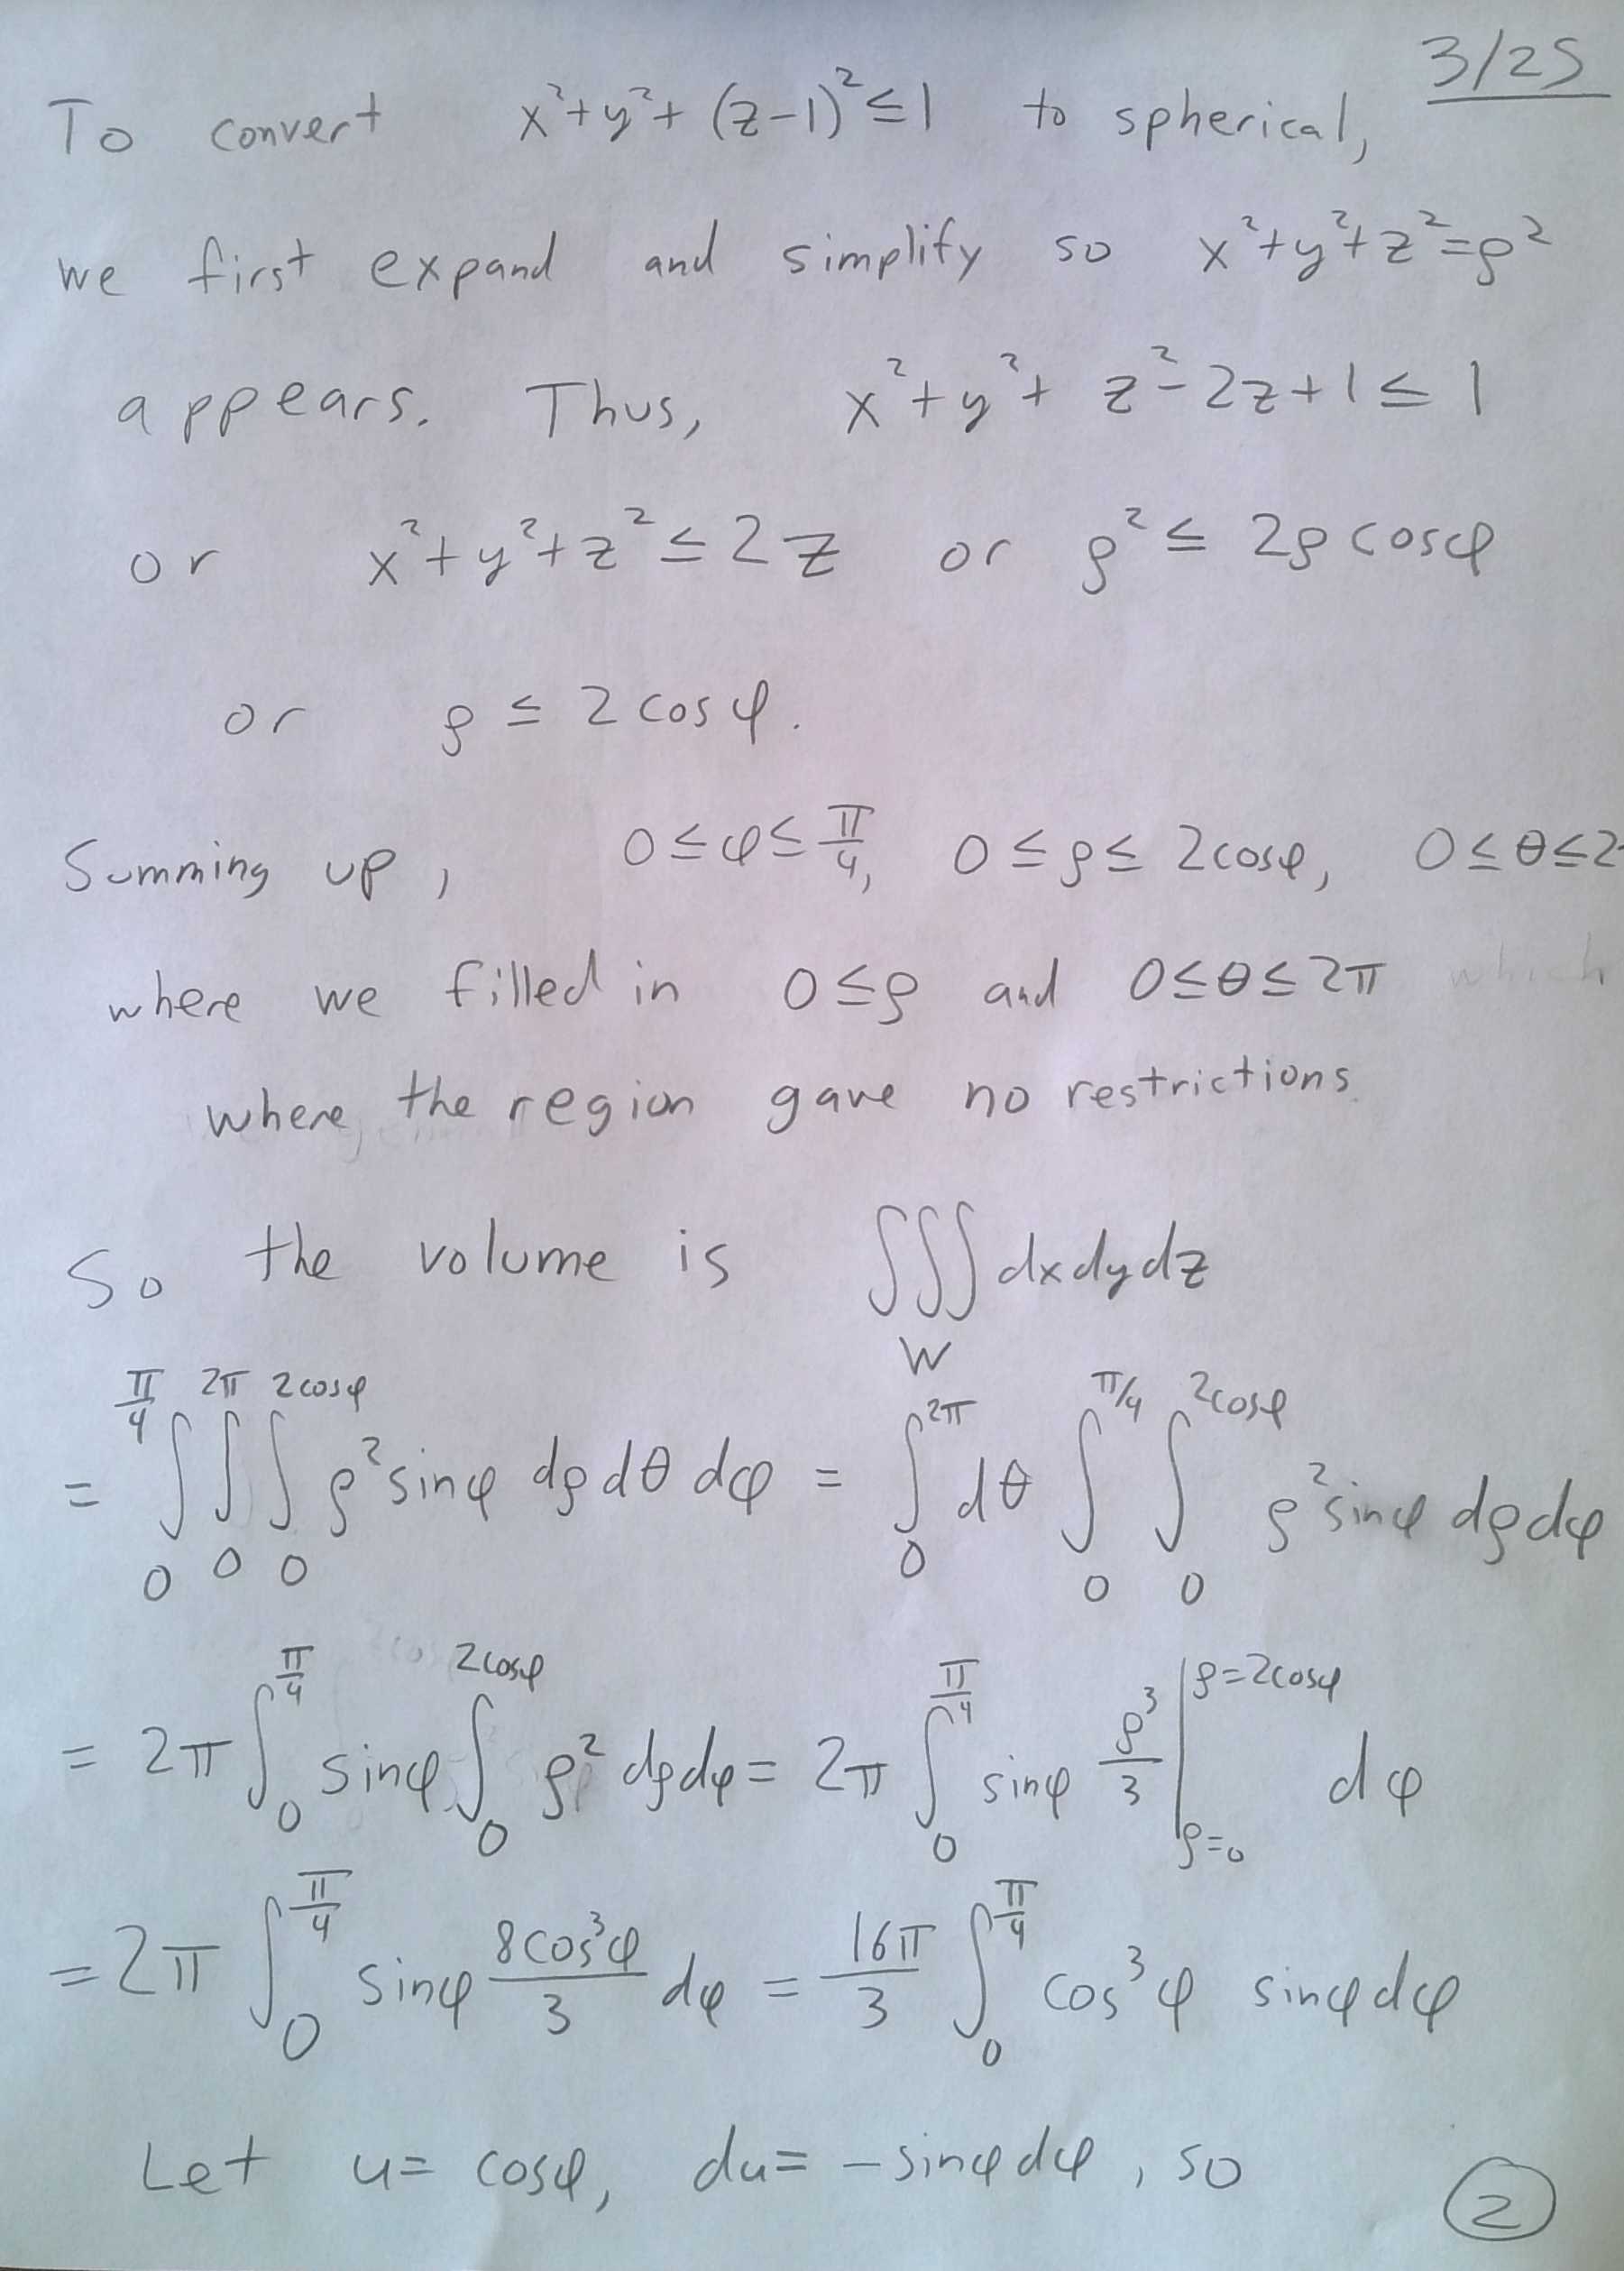 3/25
To convert x²+y²+(z-1)²≤1 to spherical,
we first expand and simplify so x²+y²+z²=ρ²
appears. Thus, x²+y²+z²-2z+1≤1
or x²+y²+z²≤2z or ρ²≤2ρcosφ
or ρ≤2cosφ.
Summing up, 0≤φ≤π/4, 0≤ρ≤2cosφ, 0≤θ≤2
where we filled in 0≤ρ and 0≤θ≤2π which
where the region gave no restrictions.
So the volume is ∭_W dxdydz
= ∫_0^{π/4} ∫_0^{2π} ∫_0^{2cosφ} ρ²sinφ dρdθdφ = ∫_0^{2π} dθ ∫_0^{π/4} ∫_0^{2cosφ} ρ²sinφ dρdφ
= 2π ∫_0^{π/4} sinφ ∫_0^{2cosφ} ρ² dρdφ = 2π ∫_0^{π/4} sinφ ρ³/3 |_{ρ=0}^{ρ=2cosφ} dφ
= 2π ∫_0^{π/4} sinφ 8cos³φ/3 dφ = 16π/3 ∫_0^{π/4} cos³φ sinφdφ
Let u= cosφ, du= -sinφdφ, so
2